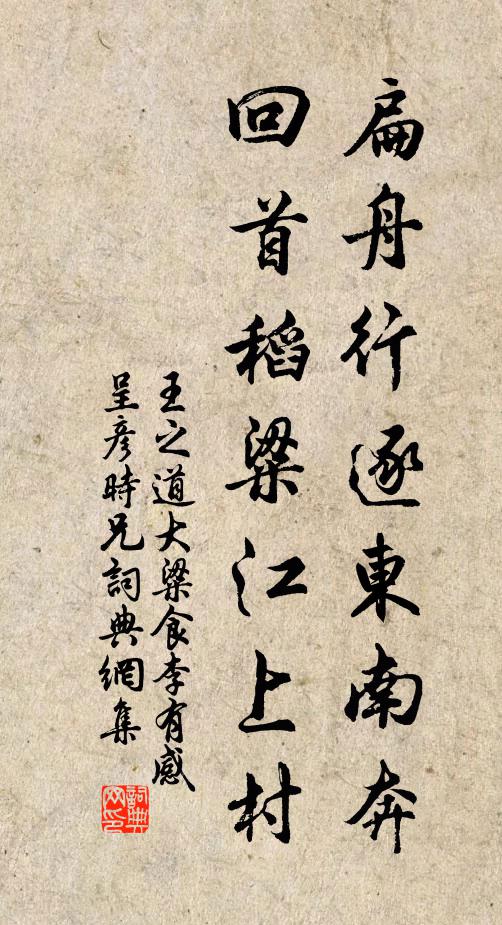 扁舟行逐東南奔
回首稻粱江上村
王之道大梁食李有感
呈彦時兄詞典網集
詞典
网印